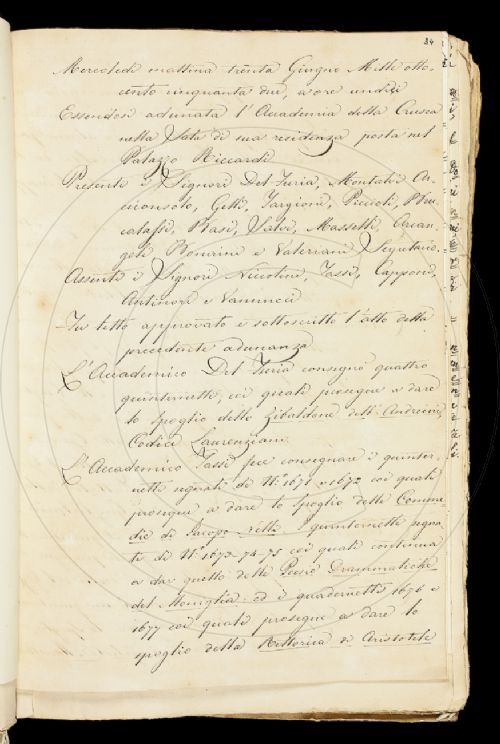 84
Mercoledì mattina trenta Giugno Mille otto-
cento cinquanta due, a ore undici
Essendosi adunata l'Accademia della Crusca
nella Sala di sua residenza posta nel
Palazzo Riccardi
Presenti i Signori Del Furia, Montalvi Ar-
ciconsolo, Gelli, Targioni, Piccioli, Bru-
calassi, Rasi, Salvi, Masselli, Arcan-
geli Bonirini e Valeriani Segretario.
Assenti i Signori Nicolini, Tassi, Capponi,
Antinori e Vannucci
Fu letto approvato e sottoscritto l'atto della
precedente adunanza
L'Accademico Del Furia consegnò quattro
quinternetti, coi quali prosegue a dare
lo spoglio dello Zibaldone dell'Andreini,
Codici Laurenziani.
L'Accademico Tassi fece consegnare i quinter-
netti segnati di N.º 1671 e 1672 coi quali
prosegue a dare lo spoglio delle Comme-
die di Jacopo Nelli quinternetti segna-
ti di N.º 1673-74-75 coi quali continua
a dar quello delle Poesie Drammatiche
del Moniglia: ed i quadernetti 1676 e
1677 coi quali prosegue a dare lo
spoglio della Rettorica di Aristotele